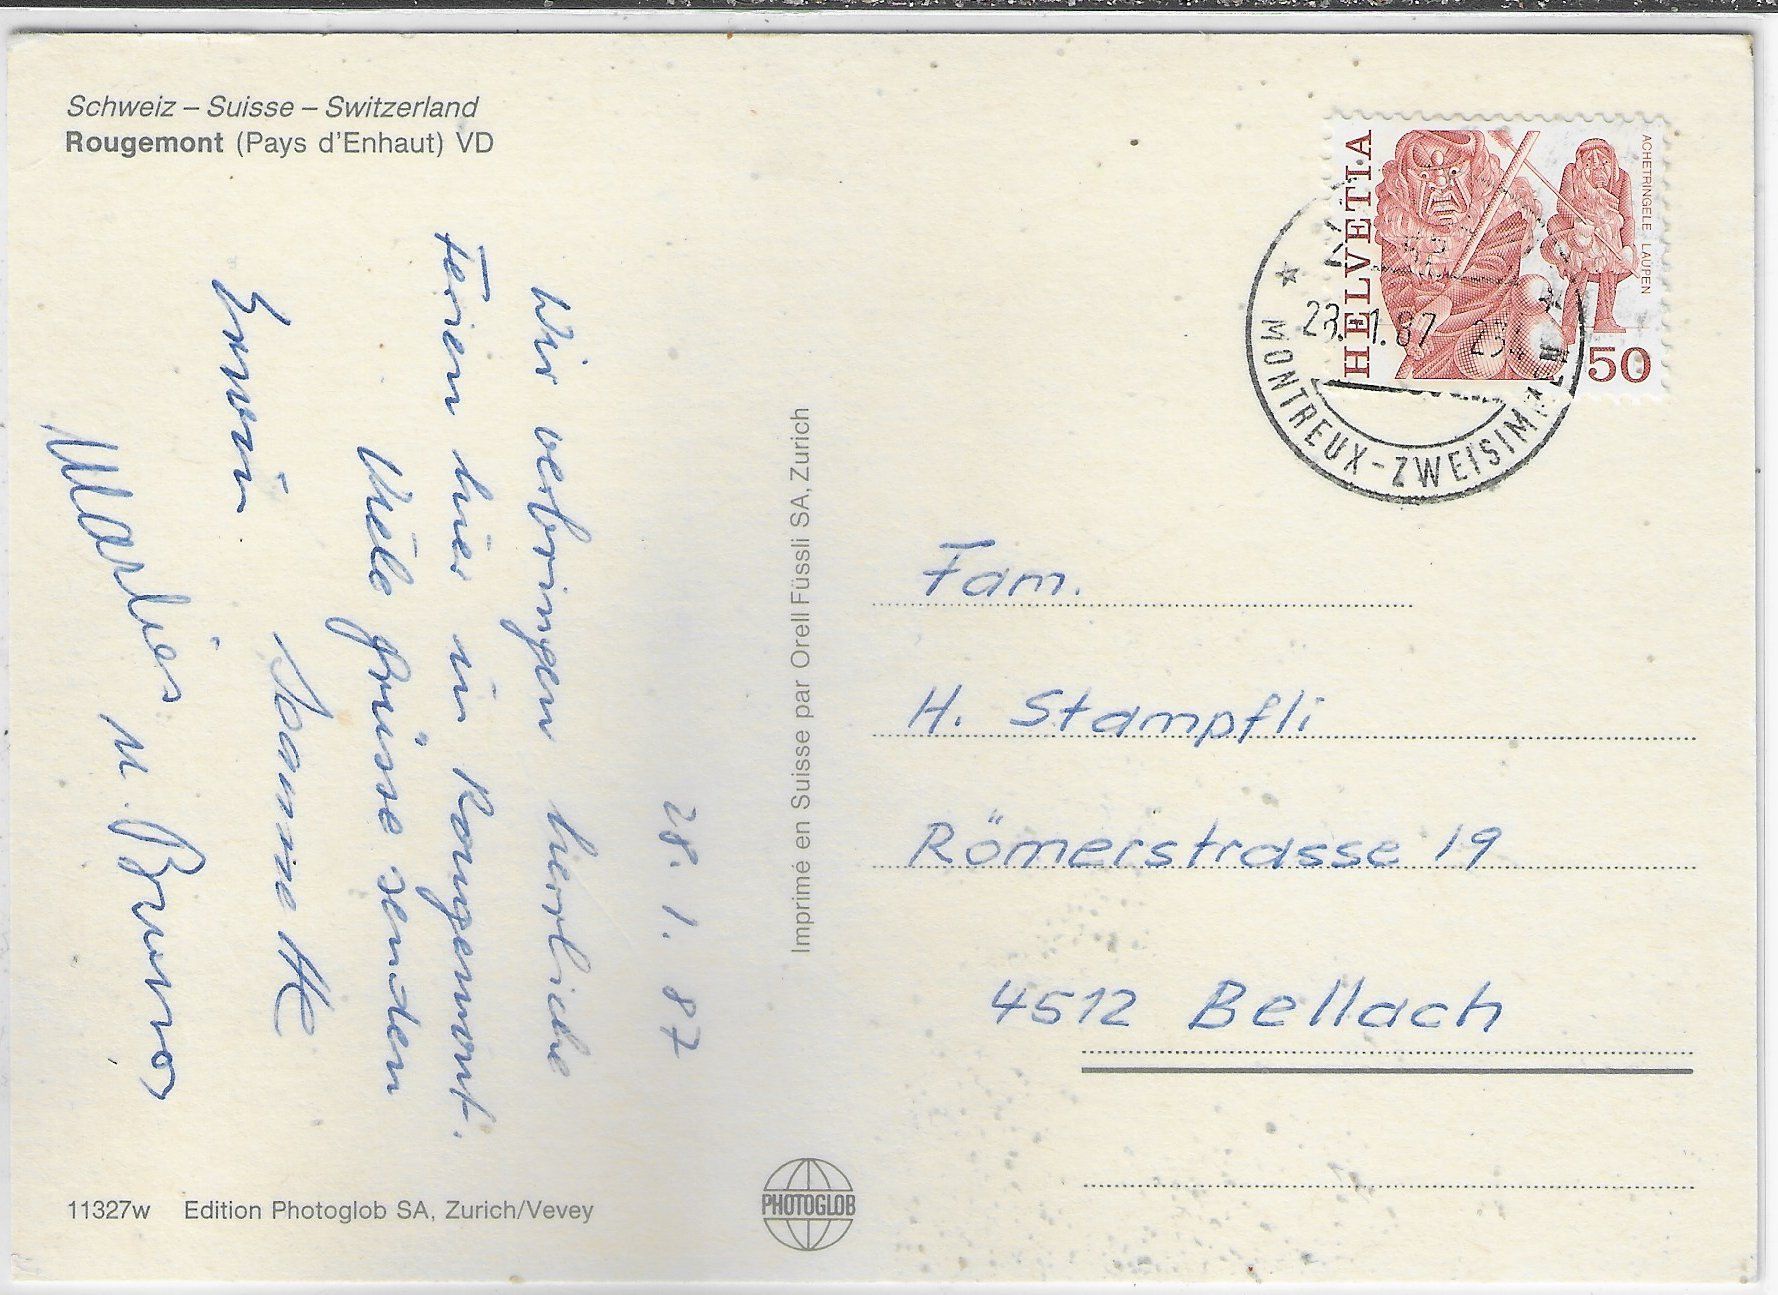 Schweiz – Suisse – Switzerland
Rougemont (Pays d'Enhaut) VD
28. 1. 87
Wir verbringen herrliche
Ferien hier in Rougemont.
Viele Grüsse senden
Erwin
Marlies u. Bruno
Imprimé en Suisse par Orell Füssli SA, Zurich
HELVETIA
ACHETRINGELE LAUPEN
50
28. 1. 87
MONTREUX-ZWEISIMMEN
Fam.
H. Stampfli
Römerstrasse 19
4512 Bellach
11327w Edition Photoglob SA, Zurich/Vevey
PHOTOGLOB